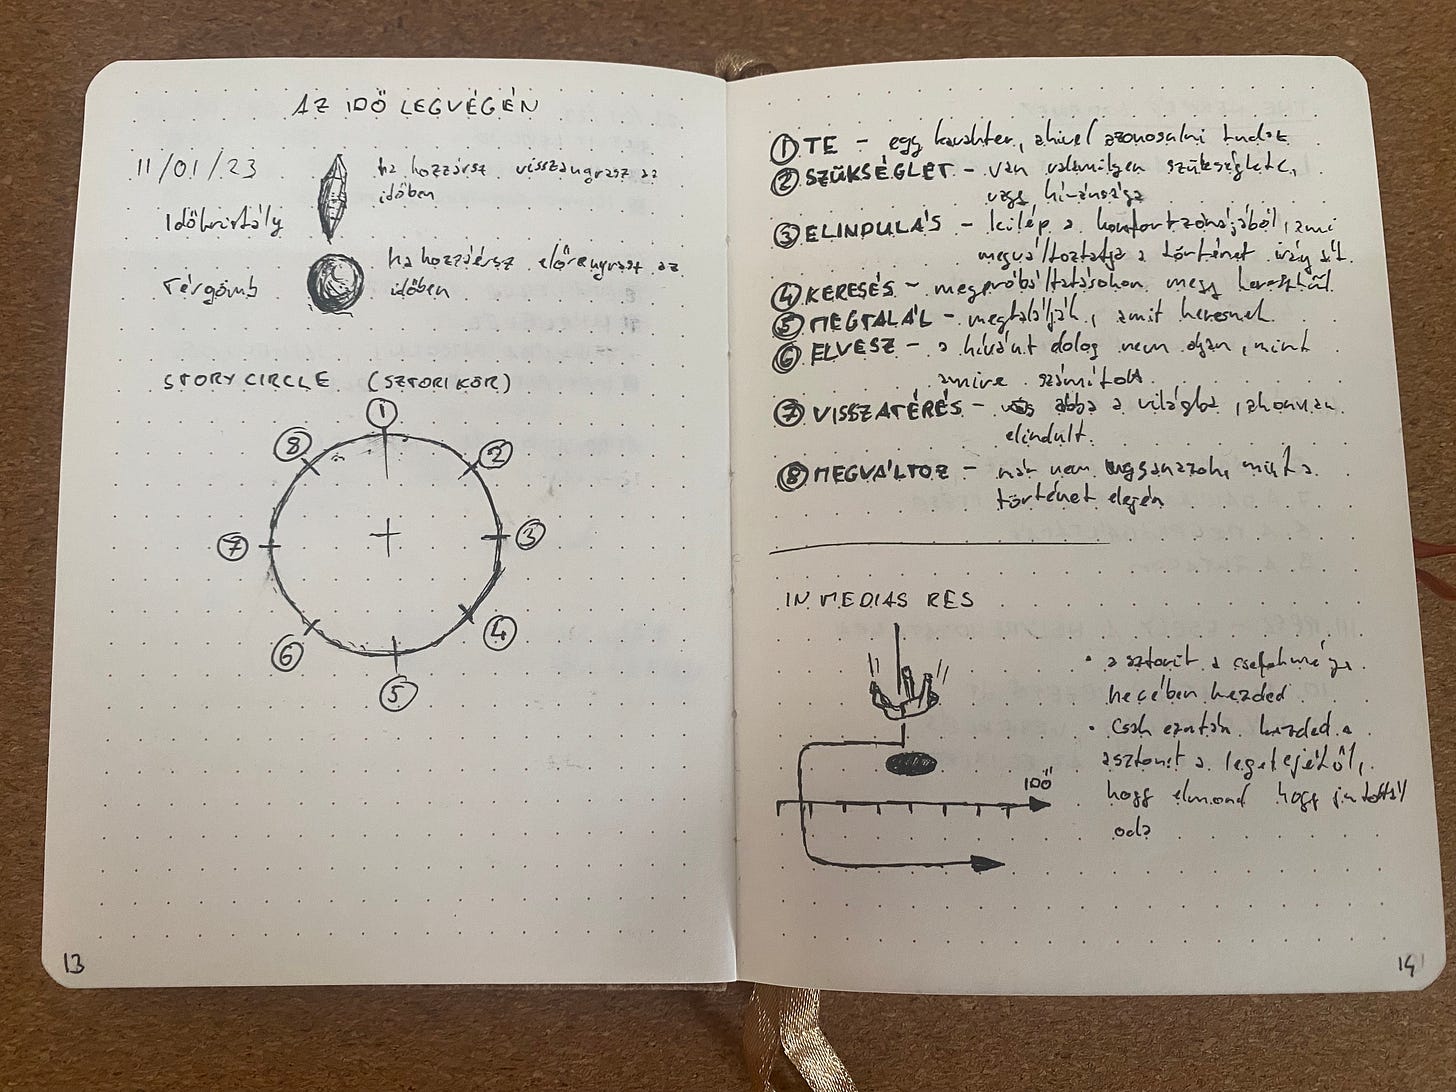 AZ IDŐ LEGVÉGÉN
11/01/23
Időkristály
ha hozzáérsz visszaugrasz az
időben
Térgömb
ha hozzáérsz előreugrasz az
időben
STORY CIRCLE (SZTORI KÖR)
1
2
3
4
5
6
7
8
13
1 TE - egy karakter, akivel azonosulni tudsz
2 SZÜKSÉGLET - van valamilyen szükséglete,
vagy kívánsága
3 ELINDULÁS - kilép a komfortzónájából, ami
megváltoztatja a történet irányát.
4 KERESÉS - megpróbáltatásokon megy keresztül
5 MEGTALÁL - megtalálják, amit keresnek
6 ELVESZ - a kívánt dolog nem olyan, mint
amire számított.
7 VISSZATÉRÉS - abba a világba, ahonnan
elindult.
8 MEGVÁLTOZ - már nem ugyanazok, mint a
történet elején
IN MEDIAS RES
• a sztorit a cselekmény
kecében kezded
• Csak ezután kezded a
a sztorit a legelejétől,
hogy elmond hogy jutottál
oda
IDŐ
14